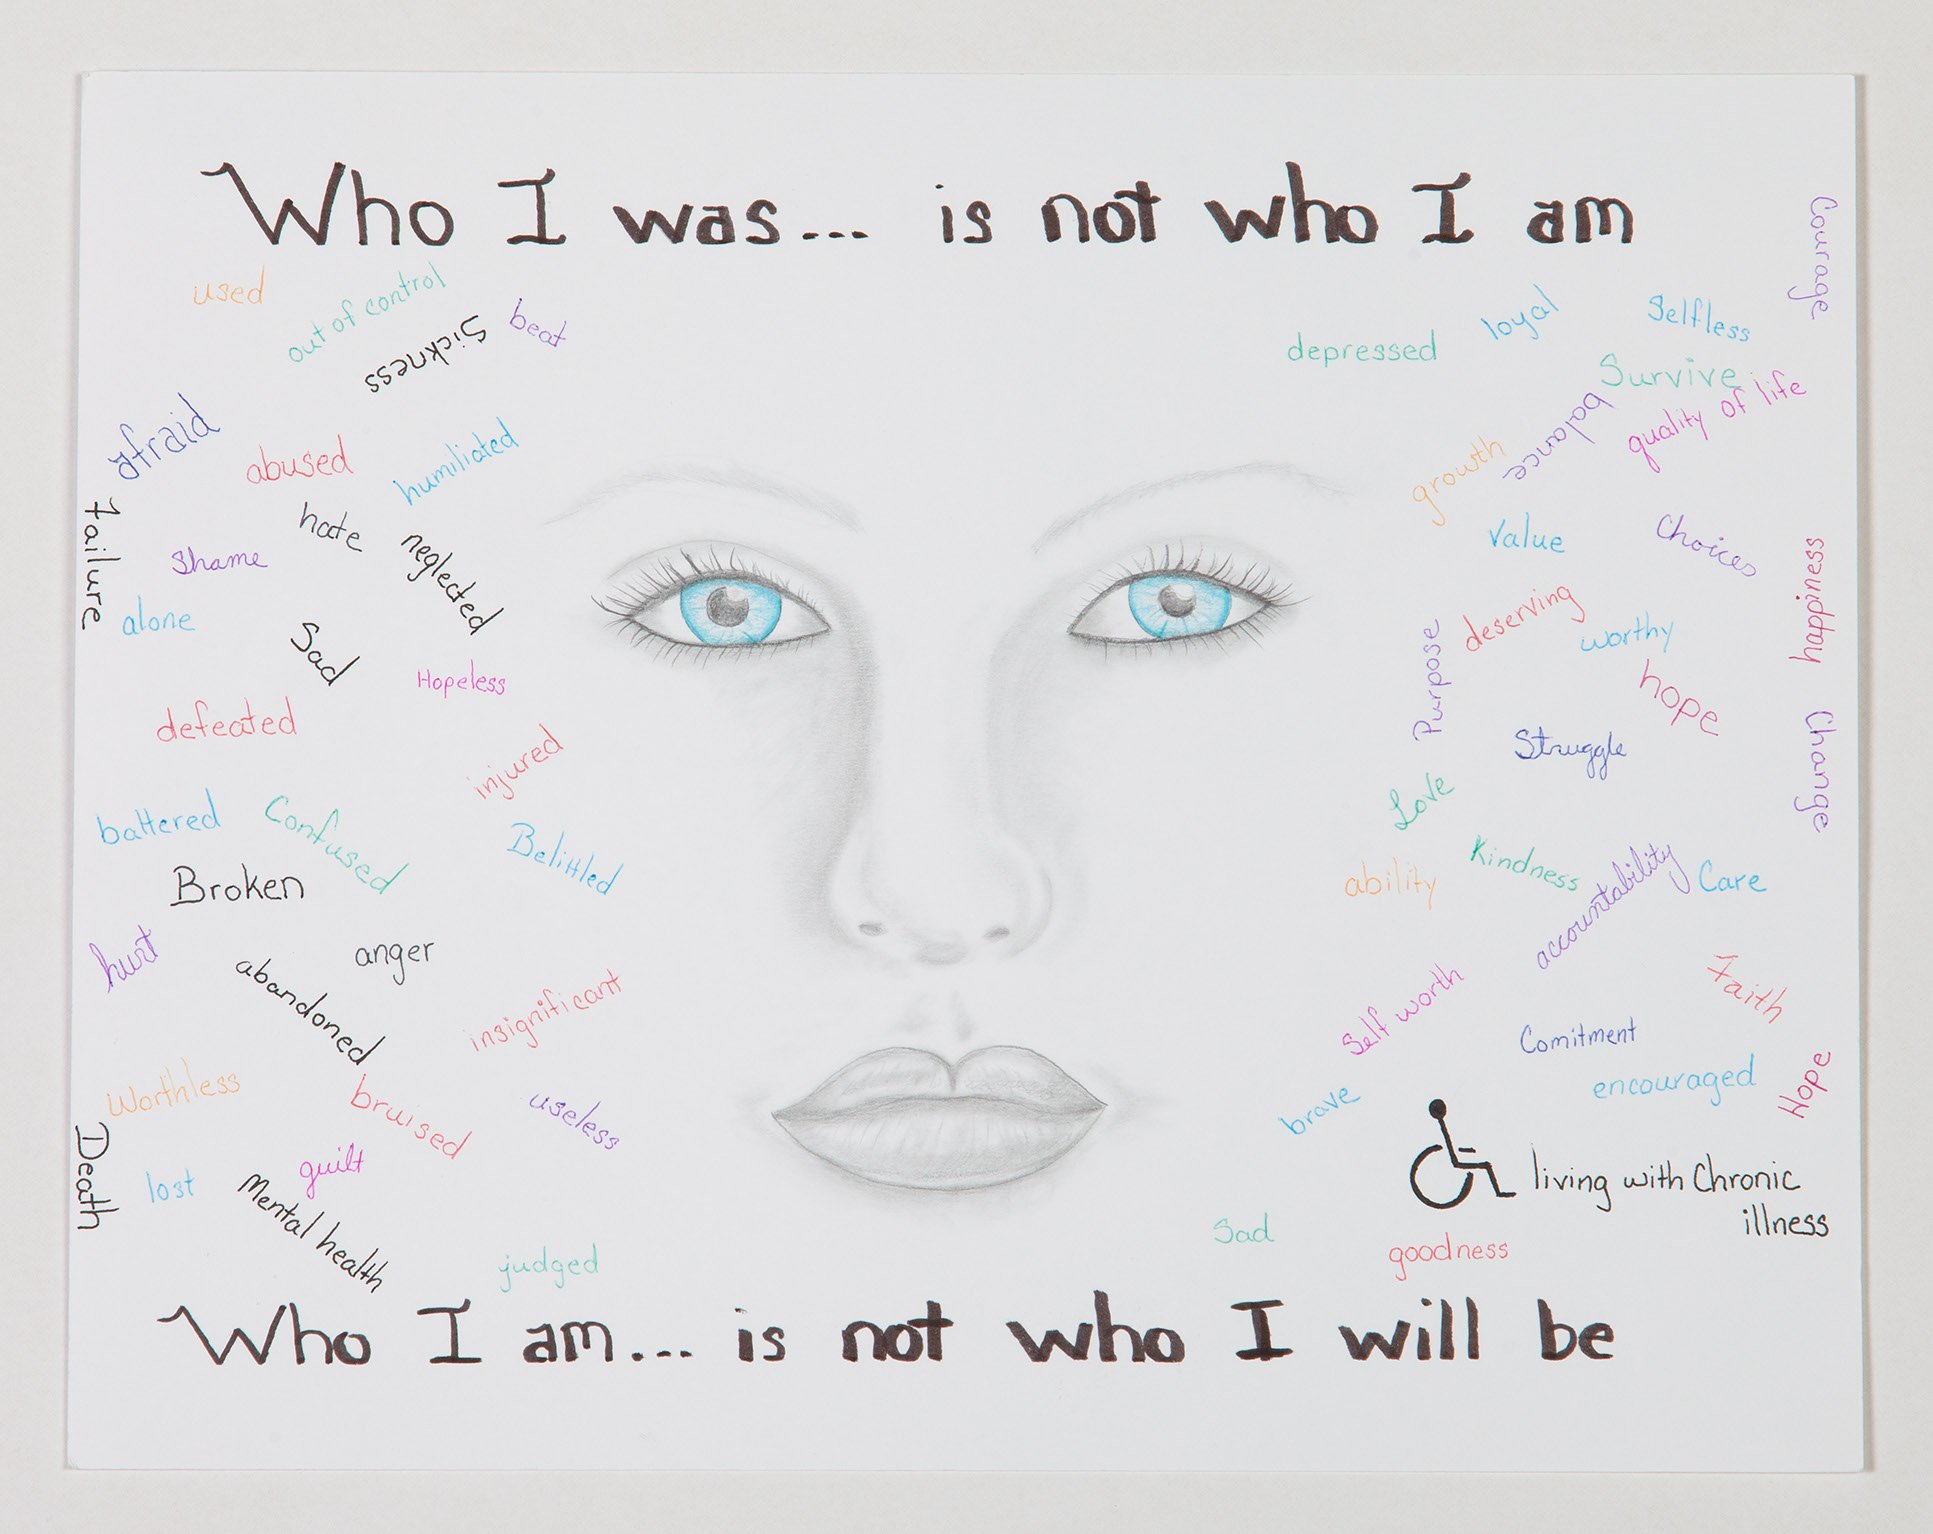 Who I was... is not who I am
used
out of control
Sickness
beat
afraid
abused
humiliated
Failure
hate
neglected
Shame
alone
Sad
Hopeless
defeated
injured
battered
Confused
Belittled
Broken
hurt
anger
abandoned
insignificant
Worthless
bruised
useless
Death
lost
guilt
Mental health
judged
Courage
loyal
Selfless
depressed
Survive
balance
quality of life
growth
Value
Choices
happiness
deserving
worthy
Purpose
hope
Struggle
Change
Love
Kindness
ability
accountability
Care
Faith
Self worth
Comitment
encouraged
Hope
brave
living with Chronic
illness
Sad
goodness
Who I am... is not who I will be